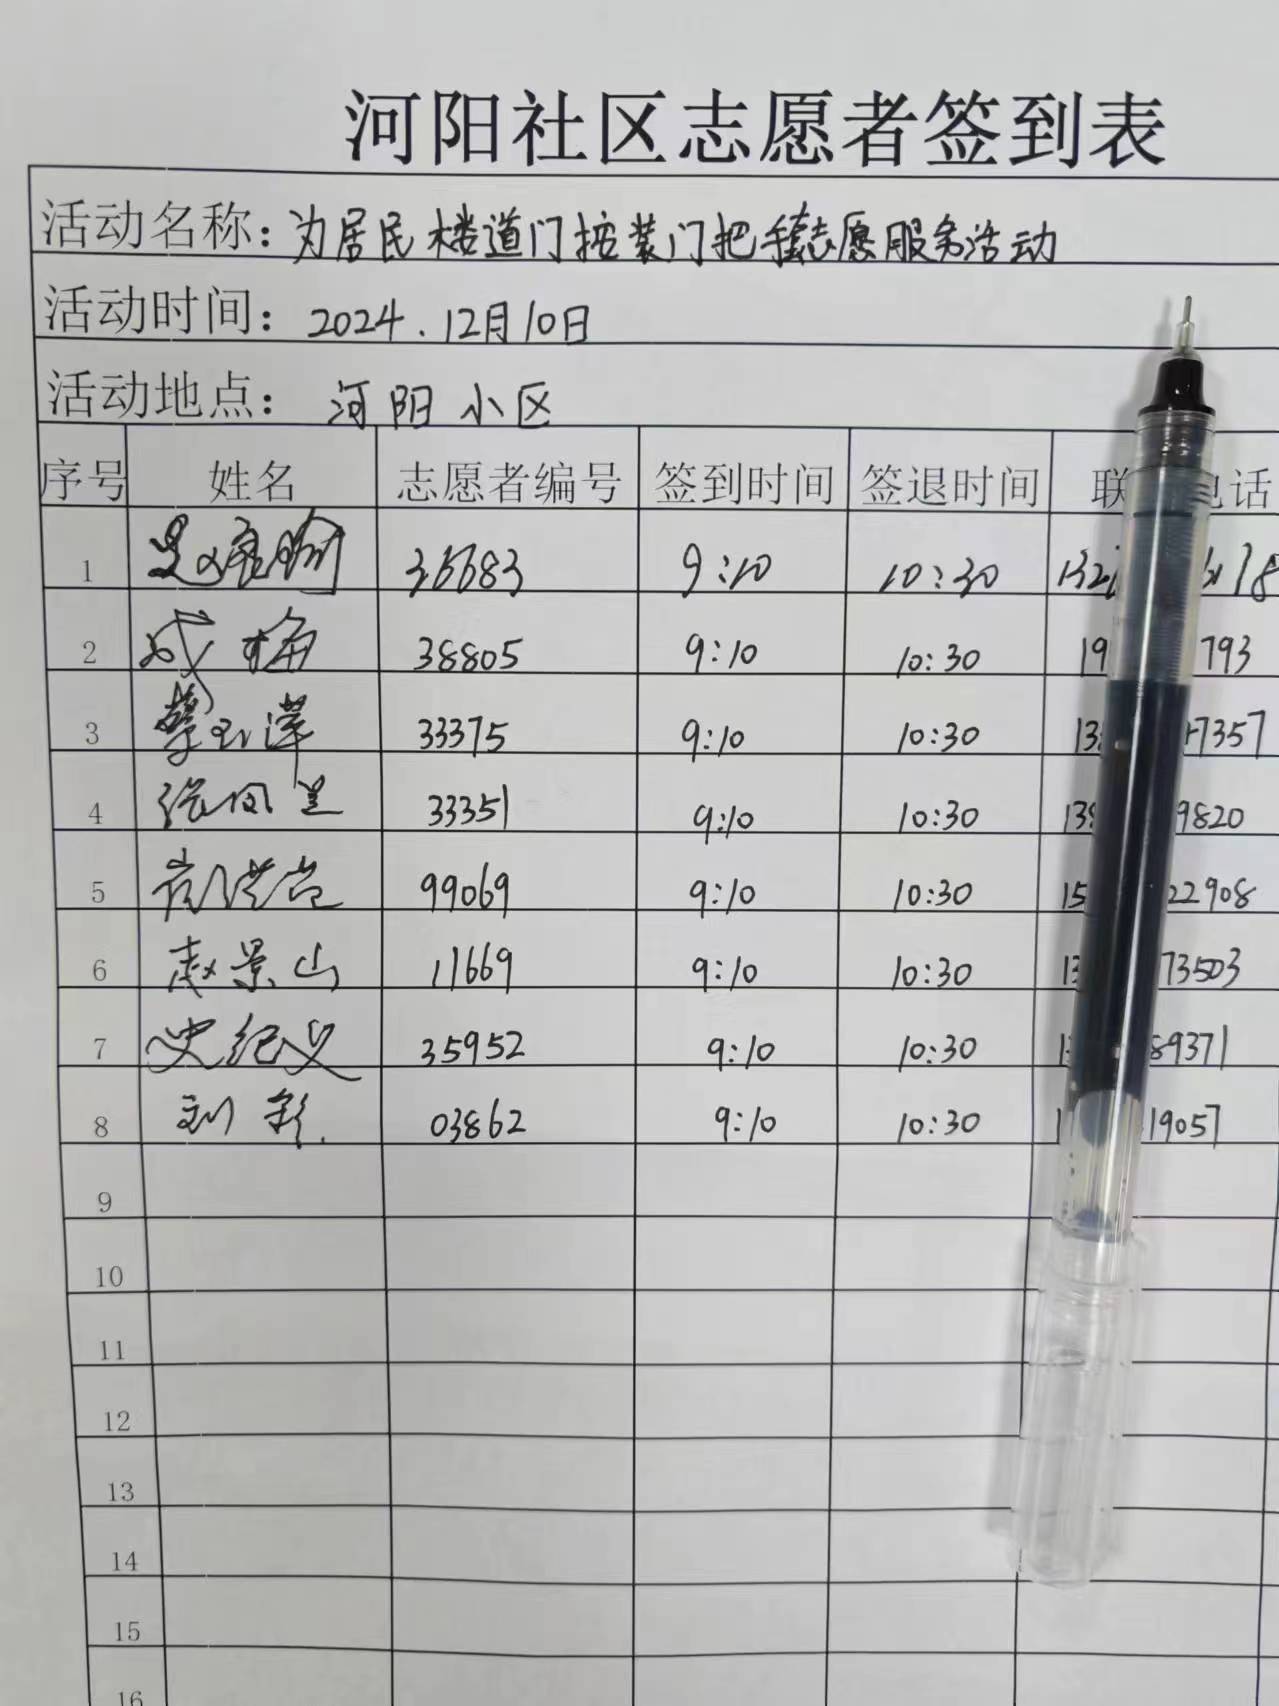 河阳社区志愿者签到表
活动名称：为居民楼道门按装门把手套志愿服务活动
活动时间：2024.12月10日
活动地点：河阳小区
序号 姓名 志愿者编号 签到时间 签退时间 联 电话
1 36683 9:10 10:30
2 成梅 38805 9:10 10:30 19 793
3 33375 9:10 10:30 13 7357
4 张凤兰 33351 9:10 10:30 13 9820
5 99069 9:10 10:30 15 22908
6 赵景山 11669 9:10 10:30 13 73503
7 史纪义 35952 9:10 10:30 1 89371
8 刘 03862 9:10 10:30 1 19057
9
10
11
12
13
14
15
16